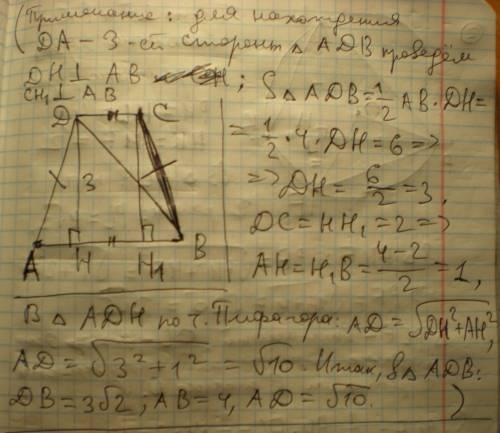 (Примечание: для нахождения
DA – 3-ей стороны △ ADB проведём
DH ⊥ AB ; S△ADB = 1/2 AB · DH =
CH₁ ⊥ AB
= 1/2 · 4 · DH = 6 =>
=> DH = 6/2 = 3,
DC = HH₁ = 2 =>
AH = H₁B = (4 – 2)/2 = 1,
D C
3
A H H₁ B
В △ ADH по т. Пифагора: AD = √(DH² + AH²),
AD = √(3² + 1²) = √10. Итак, в △ ADB:
DB = 3√2; AB = 4, AD = √10. )